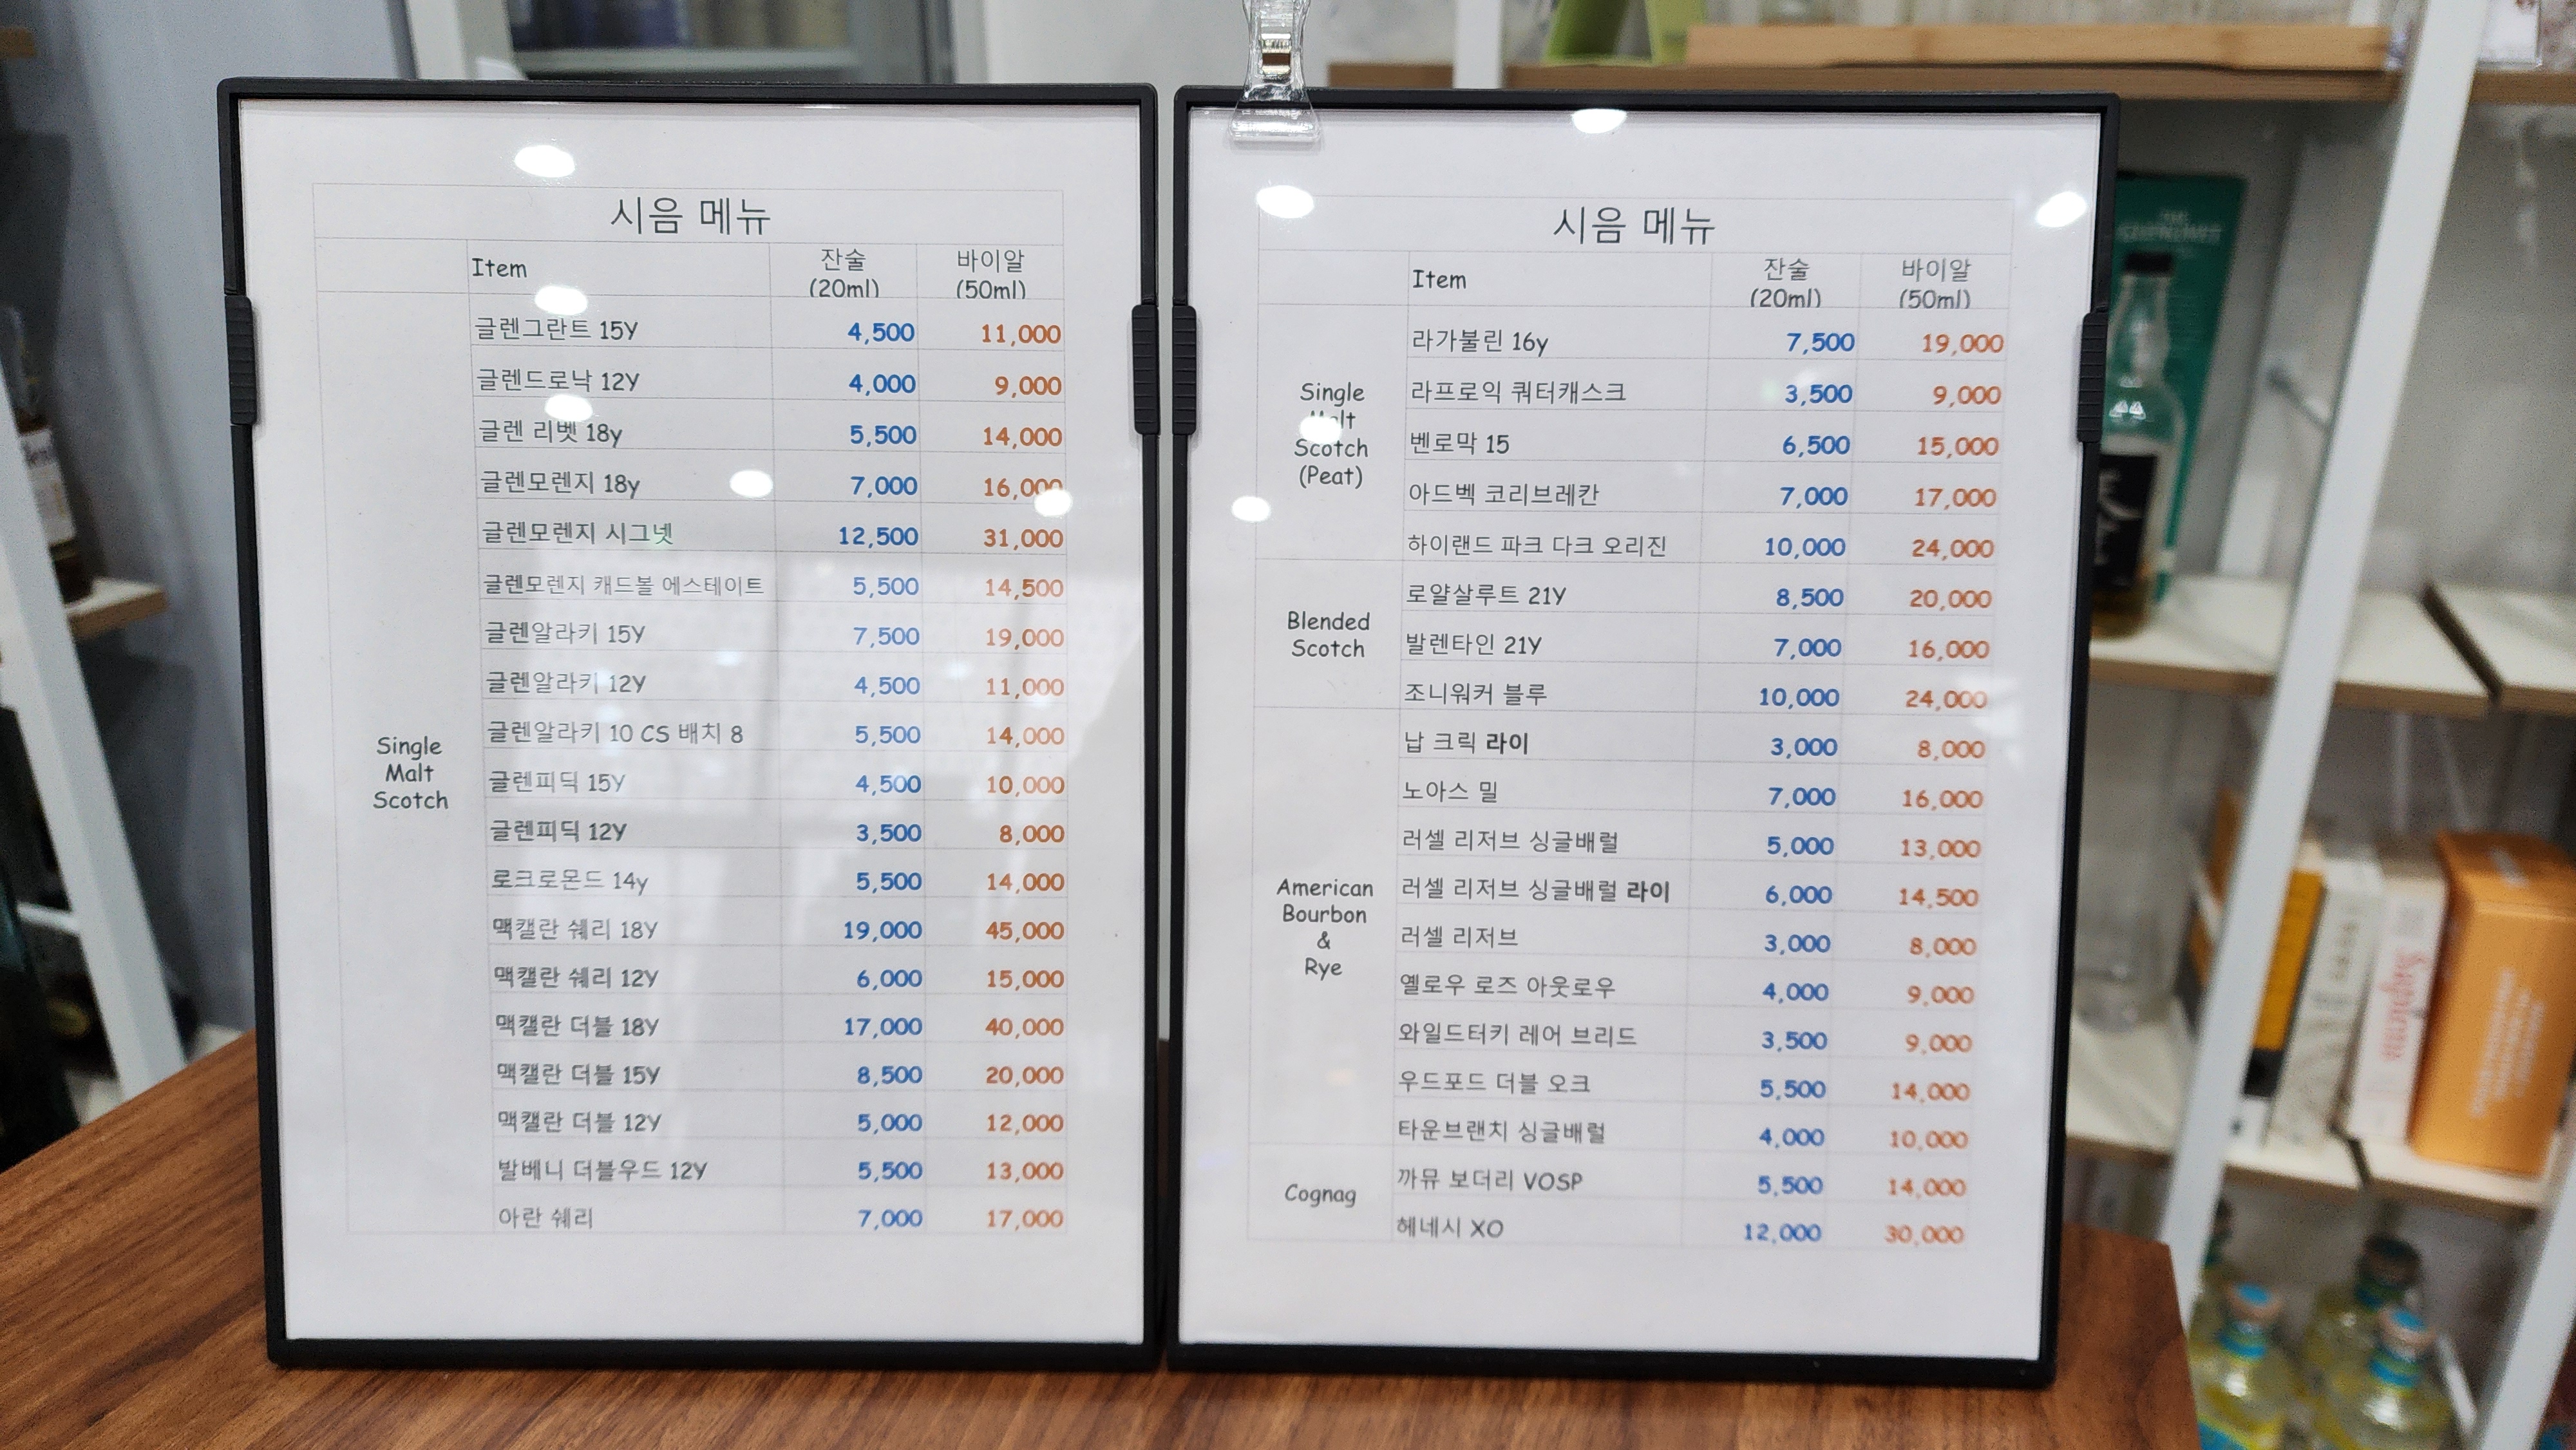 시음 메뉴
Item 잔술 (20ml) 바이알 (50ml)
Single Malt Scotch
글렌그란트 15Y 4,500 11,000
글렌드로낙 12Y 4,000 9,000
글렌 리벳 18y 5,500 14,000
글렌모렌지 18y 7,000 16,000
글렌모렌지 시그넷 12,500 31,000
글렌모렌지 캐드볼 에스테이트 5,500 14,500
글렌알라키 15Y 7,500 19,000
글렌알라키 12Y 4,500 11,000
글렌알라키 10 CS 배치 8 5,500 14,000
글렌피딕 15Y 4,500 10,000
글렌피딕 12Y 3,500 8,000
로크로몬드 14y 5,500 14,000
맥캘란 쉐리 18Y 19,000 45,000
맥캘란 쉐리 12Y 6,000 15,000
맥캘란 더블 18Y 17,000 40,000
맥캘란 더블 15Y 8,500 20,000
맥캘란 더블 12Y 5,000 12,000
발베니 더블우드 12Y 5,500 13,000
아란 쉐리 7,000 17,000
시음 메뉴
Item 잔술 (20ml) 바이알 (50ml)
Single Malt Scotch (Peat)
라가불린 16y 7,500 19,000
라프로익 쿼터캐스크 3,500 9,000
벤로막 15 6,500 15,000
아드벡 코리브레칸 7,000 17,000
하이랜드 파크 다크 오리진 10,000 24,000
Blended Scotch
로얄살루트 21Y 8,500 20,000
발렌타인 21Y 7,000 16,000
조니워커 블루 10,000 24,000
American Bourbon & Rye
납 크릭 라이 3,000 8,000
노아스 밀 7,000 16,000
러셀 리저브 싱글배럴 5,000 13,000
러셀 리저브 싱글배럴 라이 6,000 14,500
러셀 리저브 3,000 8,000
옐로우 로즈 아웃로우 4,000 9,000
와일드터키 레어 브리드 3,500 9,000
우드포드 더블 오크 5,500 14,000
타운브랜치 싱글배럴 4,000 10,000
Cognag
까뮤 보더리 VOSP 5,500 14,000
헤네시 XO 12,000 30,000